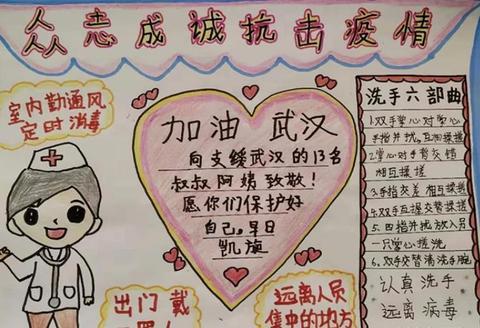 众志成诚抗击疫情
室内勤通风
定时消毒
加油 武汉
向支缓武汉的13名
叔叔阿姨致敬!
愿你们保护好
自己,早日
凯旋
洗手六部曲
1.双手掌心对掌心
手指并拢,互相揉搓
2.掌心对手背交错
相互揉搓
3.手指交差 相互揉搓
4.双手互握交替揉搓
5.四指并拢放入另
一只掌心搓洗
6.双手交替清洗手腕
认真 洗手
远离 病毒
出门 戴
远离人员
集中的地方